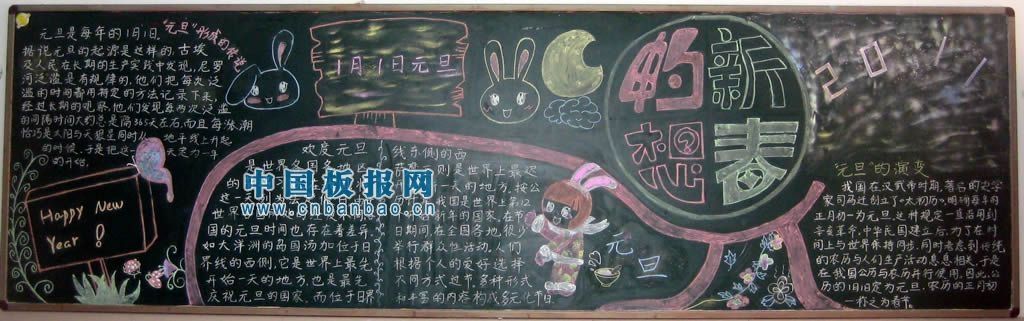 "元旦"形成的传说
元旦是每年的1月1日,
据说元旦的起源是这样的,古埃
及人民在长期的生产实践中发现,尼罗
河泛滥是有规律的,他们把每次泛
滥的时间都用特定的方法记录下来,
经过长期的观察,他们发现每两次泛滥
的间隔时间大约总是隔365天左右,而且每涨潮
恰巧是太阳与天狼星同时从 地平线上升起
的时候,于是把这一 天定为一年
的开始.
Happy New
Year !
1月1日元旦
新春
的想
2011
欢度元旦
是世界各国各地区
的
这一天
世界
国的元旦时间也存在着差异,
如大洋洲的岛国汤加位于日
界线的西侧,它是世界上最先
开始一天的地方,也是最先
庆祝元旦的国家,而位于日界
线东侧的西
则是世界上最迟
一天的地方,按公
我国是世界上第12
新年的国家,在节
日期间,在全国各地,很少
举行群众性活动,人们
根据个人的爱好选择
不同方式过节,多种形式
和丰富的内容构成多元化节日.
元旦
"元旦"的演变
我国在汉武帝时期,著名的史学
家司马迁创立了"太初历",明确每年的
正月初一为元旦,这种规定一直沿用到
辛亥革命,中华民国建立后,为了在时
间上与世界保持同步,同时考虑到传统
的农历与人们生产活动息息相关,于是
在我国公历与农历并行使用,因此,公
历的1月1日定为元旦,农历的正月初
一称之为春节.
中国板报网
www.cnbanbao.cn